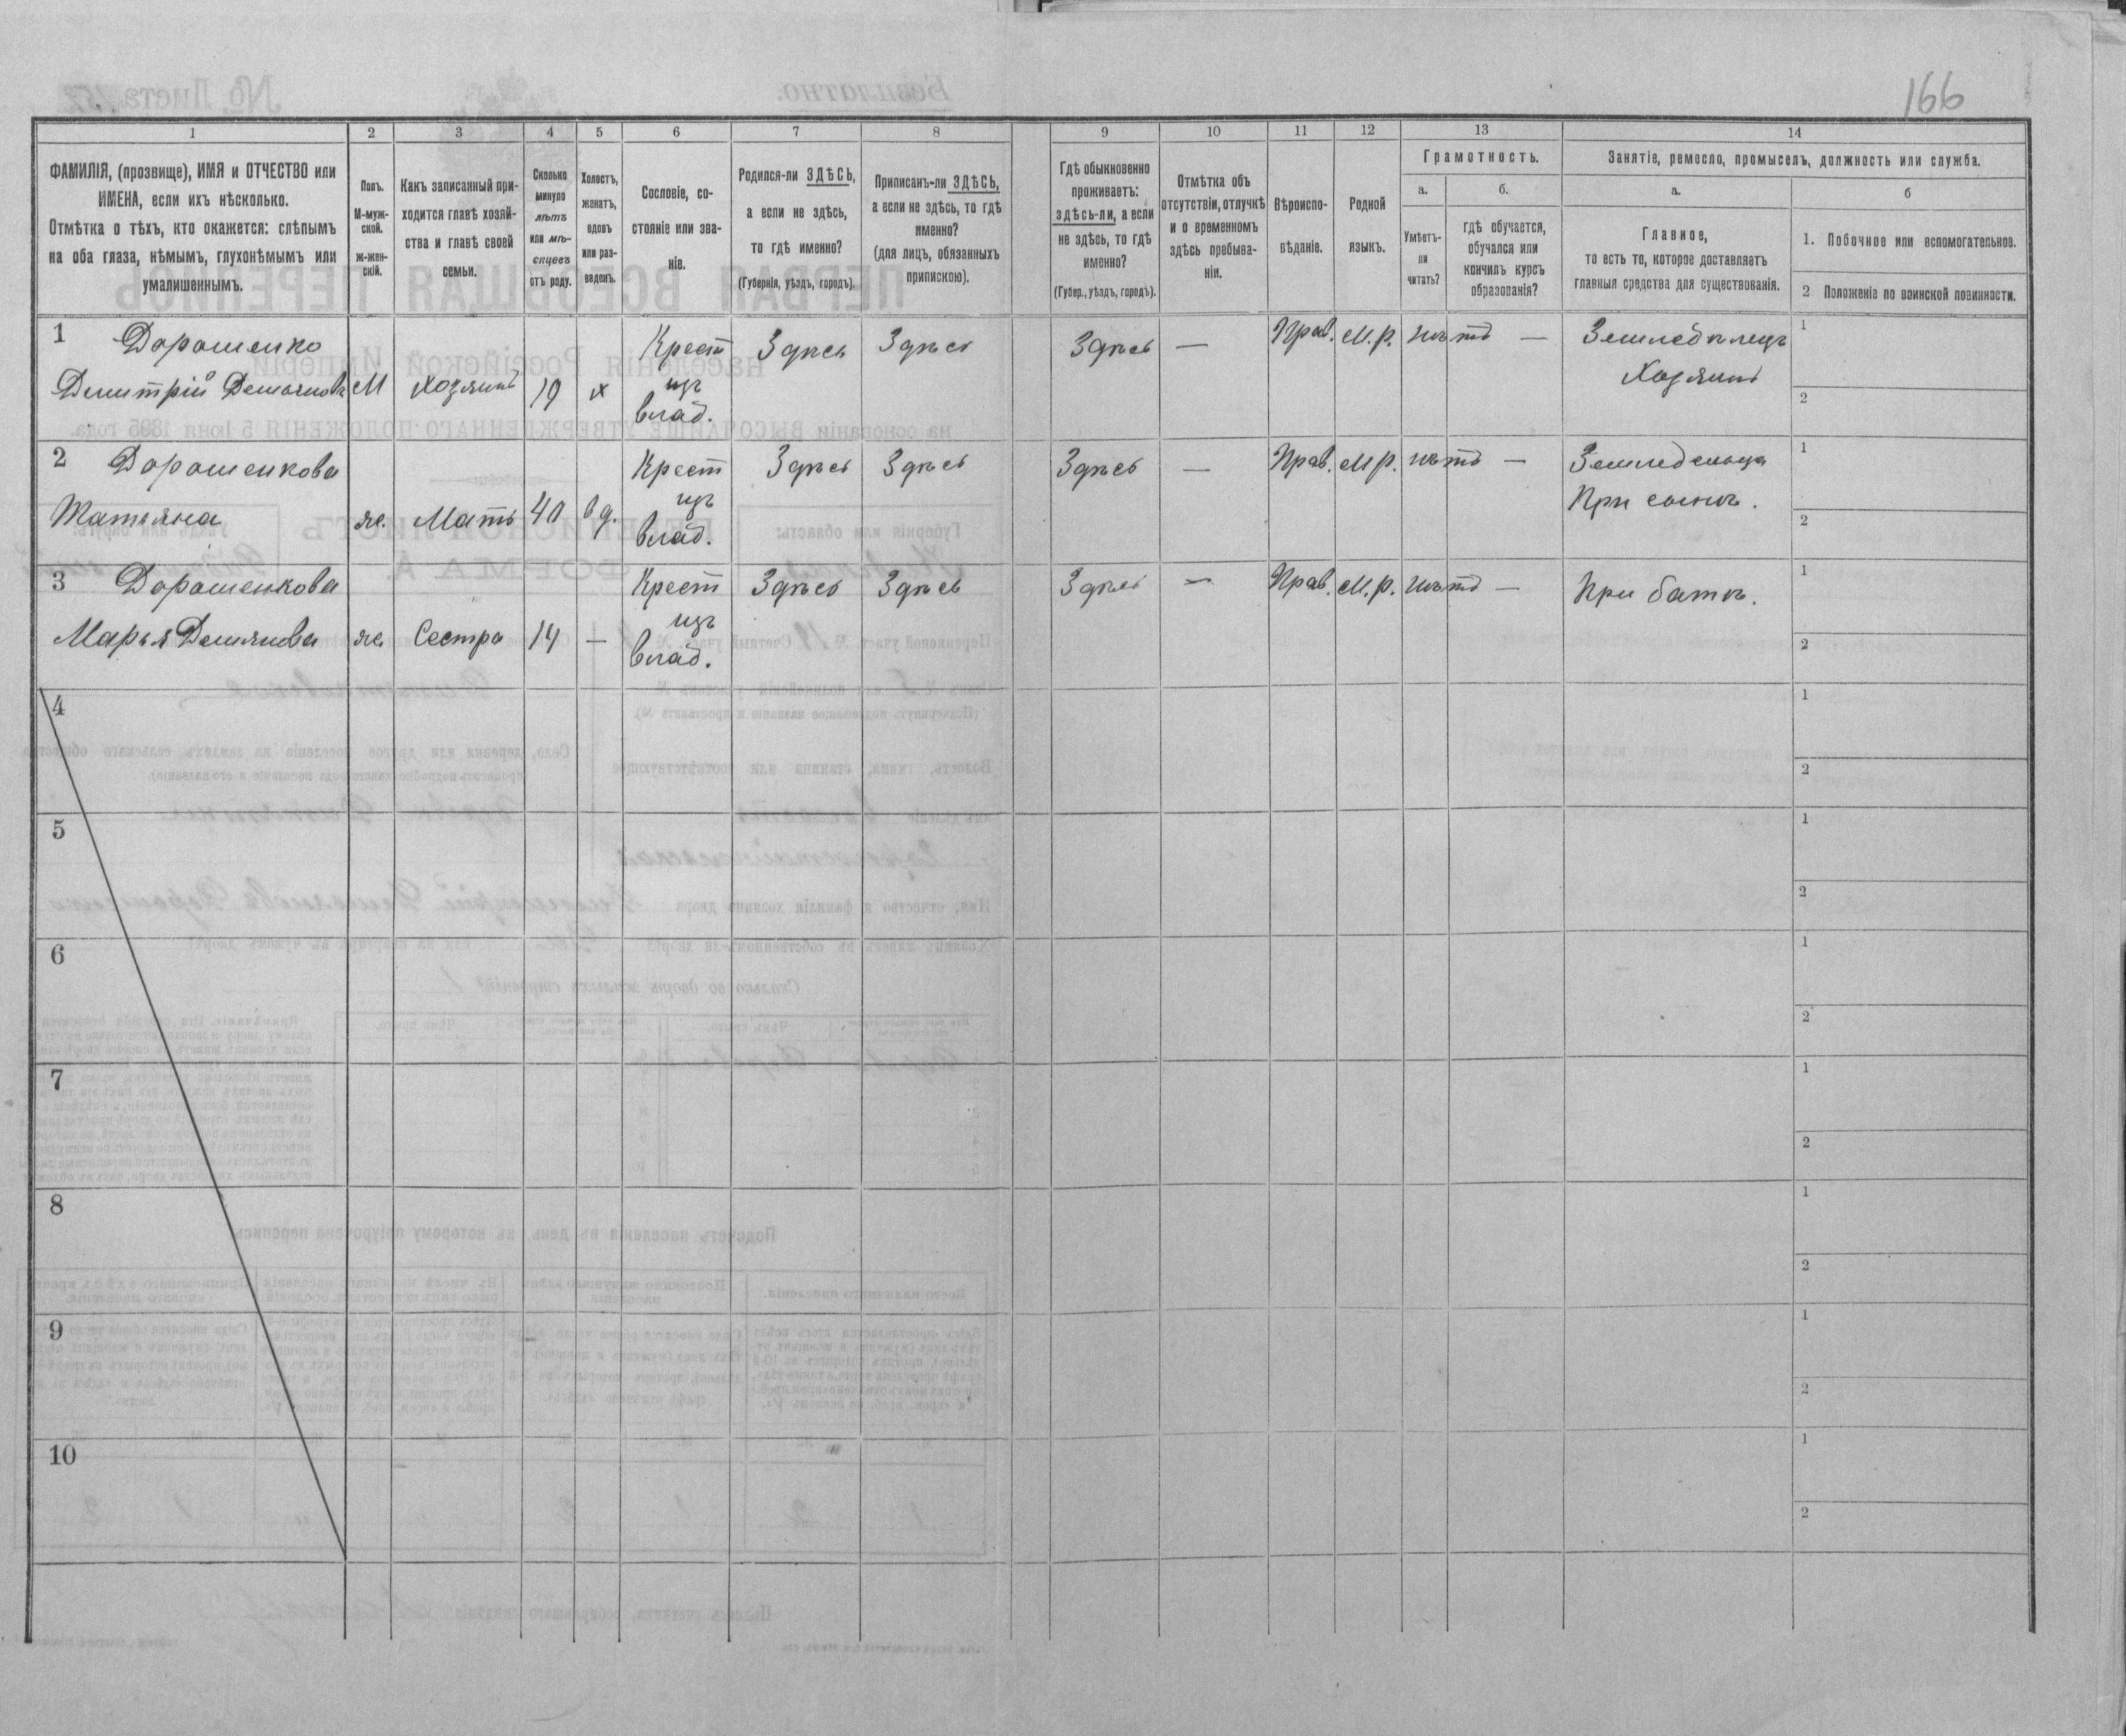 166
1 2 3 4 5 6 7 8 9 10 11 12 13 14
ФАМИЛІЯ, (прозвище), ИМЯ и ОТЧЕСТВО или
ИМЕНА, если ихъ нѣсколько.
Отмѣтка о тѣхъ, кто окажется: слѣпымъ
на оба глаза, нѣмымъ, глухонѣмымъ или
умалишеннымъ.
Полъ.
М-муж-
ской.
ж-жен-
скій.
Какъ записанный при-
ходится главѣ хозяй-
ства и главѣ своей
семьи.
Сколько
минуло
лѣтъ
или мѣ-
сяцевъ
отъ роду.
Холостъ,
женатъ,
вдовъ
или раз-
веденъ.
Сословіе, со-
стояніе или зва-
ніе.
Родился-ли ЗДѢСЬ,
а если не здѣсь,
то гдѣ именно?
(Губернія, уѣздъ, городъ).
Приписанъ-ли ЗДѢСЬ,
а если не здѣсь, то гдѣ
именно?
(для лицъ, обязанныхъ
припискою).
Гдѣ обыкновенно
проживаетъ:
здѣсь-ли, а если
не здѣсь, то гдѣ
именно?
(Губер., уѣздъ, городъ).
Отмѣтка объ
отсутствіи, отлучкѣ
и о временномъ
здѣсь пребыва-
ніи.
Вѣроиспо-
вѣданіе.
Родной
языкъ.
Грамотность.
а. б.
Умѣетъ-
ли
читать?
гдѣ обучается,
обучался или
кончилъ курсъ
образованія?
Занятіе, ремесло, промыселъ, должность или служба.
а. б
Главное,
то есть то, которое доставляетъ
главныя средства для существованія.
1. Побочное или вспомогательное.
2 Положеніе по воинской повинности.
1 Дорошенко Крест Здѣсь Здѣсь Здѣсь — Прав. М.р. нѣтъ — Земледѣлецъ 1
Димитрій Демьяновъ М Хозяинъ 19 х изъ Хозяинъ
влад. 2
2 Дорошенкова Крест Здѣсь Здѣсь Здѣсь — Прав. М.р. нѣтъ — 1
Татьяна ж. Мать 40 вд. изъ При сынѣ.
влад. 2
3 Дорошенкова Крест Здѣсь Здѣсь Здѣсь — Прав. М.р. нѣтъ — При 1
Марья Демьянова ж. Сестра 14 — изъ
влад. 2
4 1
2
5 1
2
6 1
2
7 1
2
8 1
2
9 1
2
10 1
2